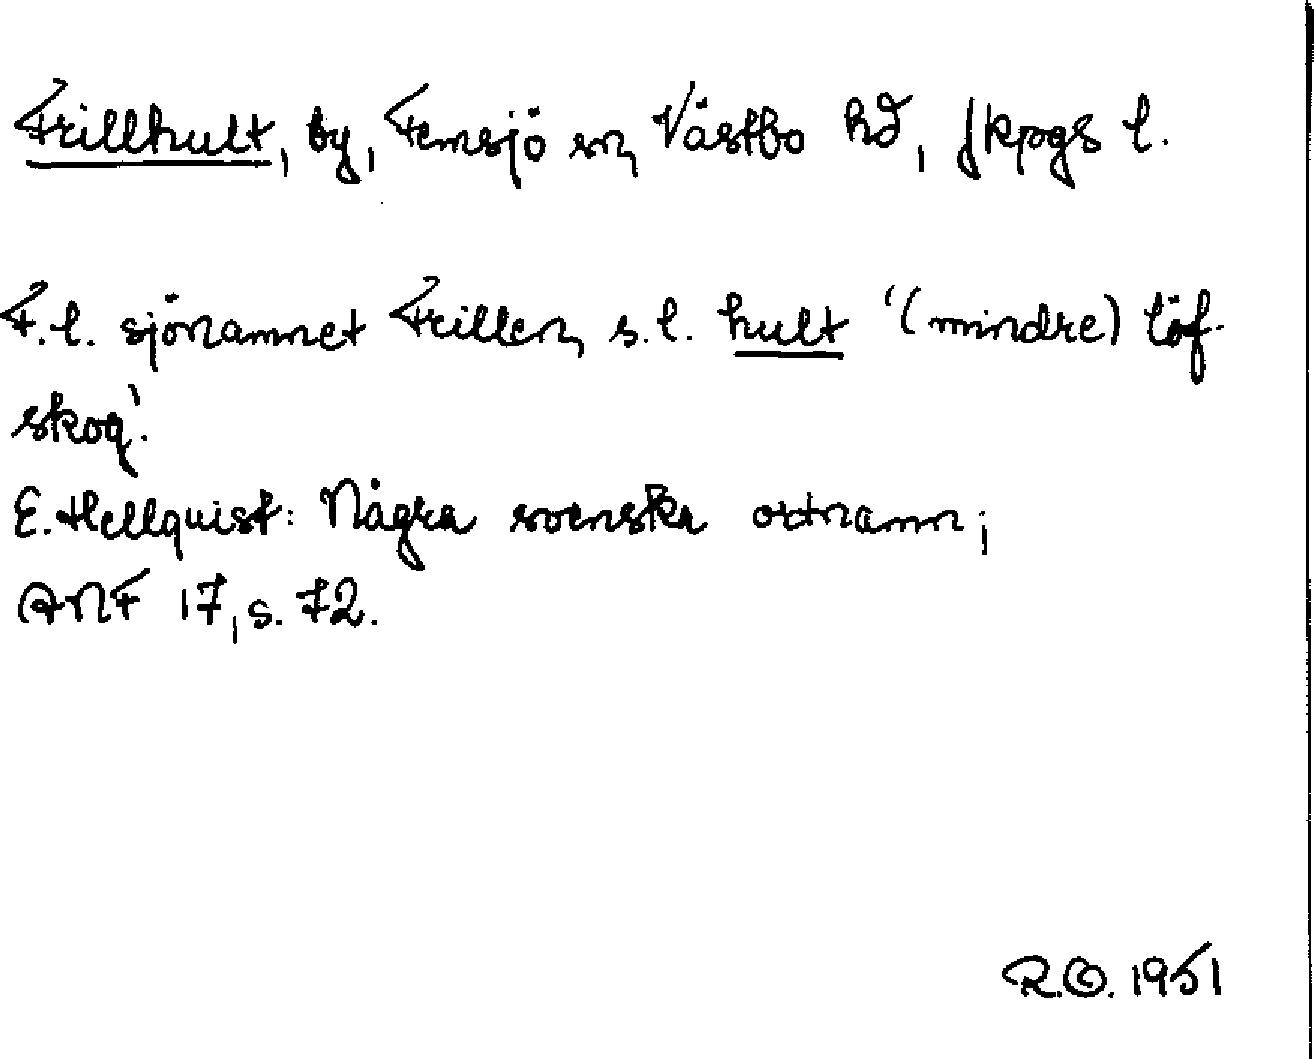 Frillhult, by, Femsjö sn, Västbo hd, Jkpgs l.
F.l. sjönamnet Frillen, s.l. hult '(mindre) löf-
skog'.
E. Hellquist: Några svenska ortnamn;
ANF 17, s. 72.
R.O. 1951